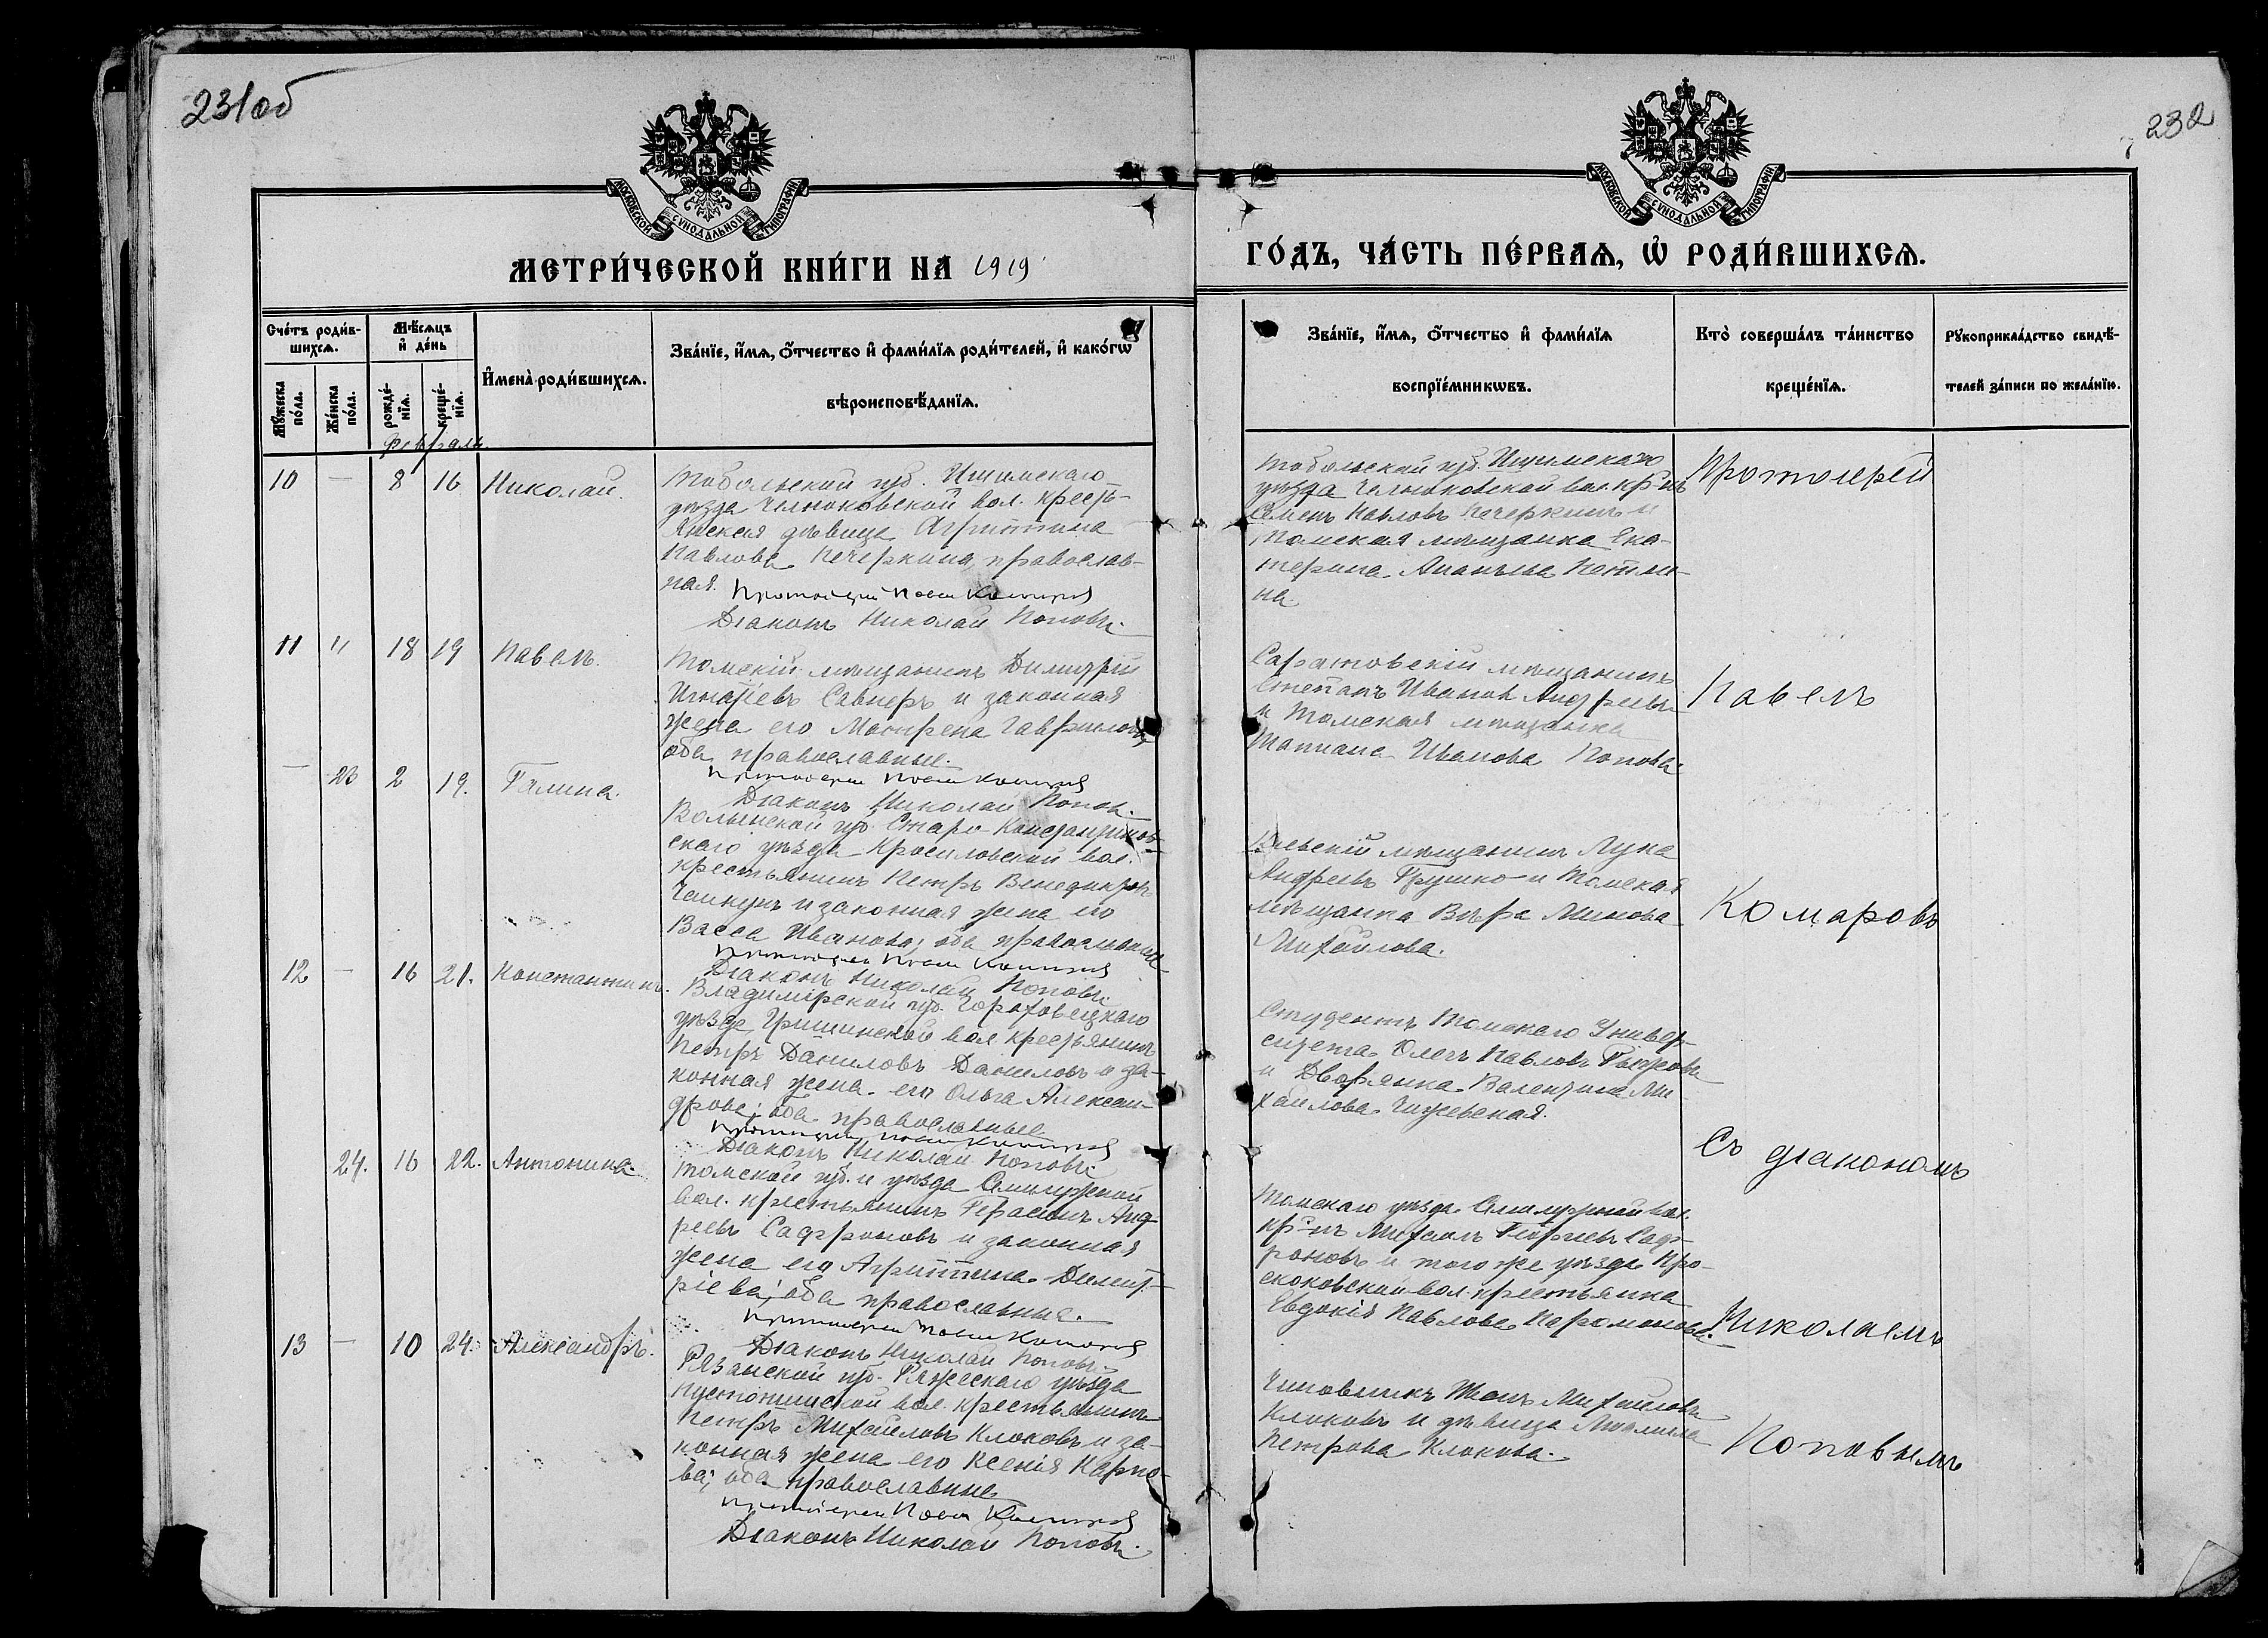 231об
232
МОСКОВСКОЙ СѴНОДАЛЬНОЙ ТИПОГРАФІИ
МОСКОВСКОЙ СѴНОДАЛЬНОЙ ТИПОГРАФІИ
МЕТРИ́ЧЕСКОЙ КНИ́ГИ НА 1919
ГО́ДЪ, ЧА́СТЬ ПЕ́РВАѦ, Ѡ҆ РОДИ́ВШИХСѦ.
Сче́тъ роди́в-
шихсѧ.
Мꙋ́жеска по́ла.
Же́нска по́ла.
Мѣ́сѧцъ
и҆ де́нь
рожде́-нїѧ.
креще́-нїѧ.
И҆мена̀ роди́вшихсѧ.
Зва́нїе, и҆́мѧ, ѻ҆́тчество и҆ фами́лїѧ роди́телей, и҆ како́гѡ
вѣроисповѣ́данїѧ.
Зва́нїе, и҆́мѧ, ѻ҆́тчество и҆ фами́лїѧ
воспрїе́мникѡвъ.
Кто̀ соверша́лъ та́инство
креще́нїѧ.
Рꙋкоприкла́дство свидѣ́-
телей за́писи по жела́нїю.
Февраль
10 — 8 16 Николай.
Тобольской губ. Ишимскаго
уѣзда Челноковской вол. кресть-
янская дѣвица Агриппина
Павлова Печеркина, православ-
ная. Протоіерей Павел Комаров
Діаконъ Николай Поповъ.
Тобольской губ. Ишимскаго
уѣзда Челноковской вол. кр-нъ
Семенъ Павловъ Печеркинъ и
Томская мѣщанка Ека-
терина Ананьева Петли-
на
Протоіерей
11 " 18 19 Павелъ.
Томскій мѣщанинъ Димитрій
Игнатіевъ и законная
жена его Матрена Гаврилова
оба православные.
Протоіерей Павел Комаров
Діаконъ Николай Попов.
Саратовскій мѣщанинъ
Степанъ Иванов Андреевъ
и Томская мѣщанка
Татиана Иванова Попова
Павелъ
— 23 2 19. Галина.
Волынской губ. Старо-Константинов-
скаго уѣзда Красиловской вол.
крестьянинъ Петръ Венедиктовъ
и законная жена его
Васса Иванова; оба православные
Протоіерей Павел Комаров
Діаконъ Николай Поповъ.
Кіевскій мѣщанинъ Лука
Андреевъ Грушко и Томская
мѣщанка Вѣра Минова
Михайлова.
Комаровъ
12 — 16 21. Константинъ.
Владимірской губ. Гороховецкаго
уѣзда Гришинской вол. крестьянинъ
Петръ Даниловъ Даниловъ и за-
конная жена его Ольга Алексан-
дрова; оба православные
Протоіерей Павел Комаров
Діаконъ Николай Поповъ.
Студентъ Томскаго Универ-
ситета Олегъ Павловъ
и Дворянка Валентина Ми-
хайлова Чижевская.
Съ діакономъ
24. 16 22. Антонина.
Томской губ. и уѣзда Семилужной
вол. крестьянинъ Герасимъ Анд-
реевъ Сафроновъ и законная
жена его Агриппина Димит-
ріева; оба православные.
Протоіерей Павел Комаров
Діаконъ Николай Поповъ.
Томскаго уѣзда Семилужной вол.
кр-нъ Михаилъ Саф-
роновъ и того же уѣзда Про-
скоковской вол. крестьянка
Евдокія Павлова Парамонова.
Николаемъ
13 — 10 24. Александръ.
Рязанской губ. Ряжескаго уѣзда
Пустотинской вол. крестьянинъ
Петръ Михайловъ Клоковъ и за-
конная жена его Ксенія Карпо-
ва; оба православные
Протоіерей Павел Комаров
Діаконъ Николай Поповъ.
Чиновникъ Михайловъ
Клоковъ и дѣвица
Петрова Клокова.
Поповымъ